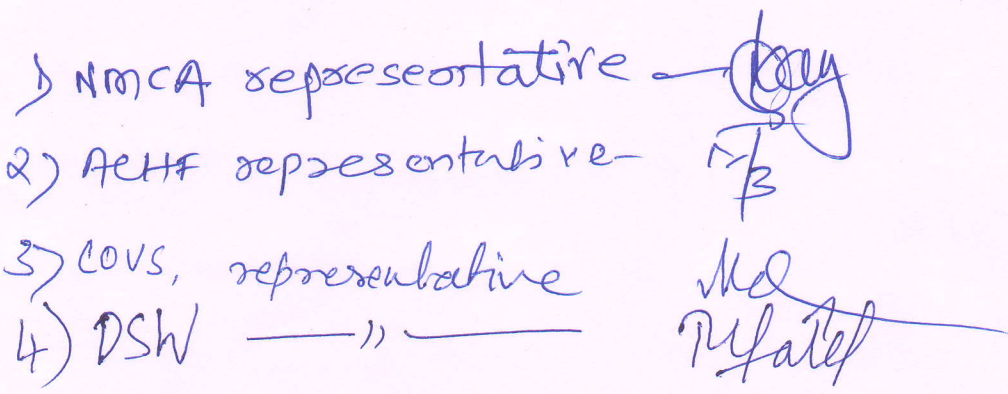 1) NMCA representative -
2) ACHF representative -
3) COVS, representative
4) DSW —— " ——